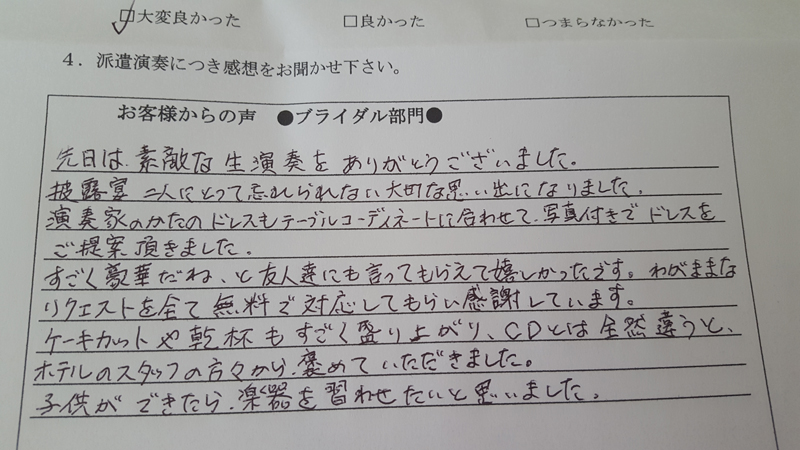 ☑大変良かった □良かった □つまらなかった
4．派遣演奏につき感想をお聞かせ下さい。
お客様からの声 ●ブライダル部門●
先日は、素敵な生演奏をありがとうございました。
披露宴 二人にとって忘れられない大切な思い出になりました。
演奏家のかたのドレスもテーブルコーディネートに合わせて、写真付きでドレスを
ご提案頂きました。
すごく豪華だね、と友人達にも言ってもらえて嬉しかったです。わがままな
リクエストを全て無料で対応してもらい感謝しています。
ケーキカットや乾杯もすごく盛り上がり、CDとは全然違うと、
ホテルのスタッフの方々から、褒めていただきました。
子供ができたら、楽器を習わせたいと思いました。